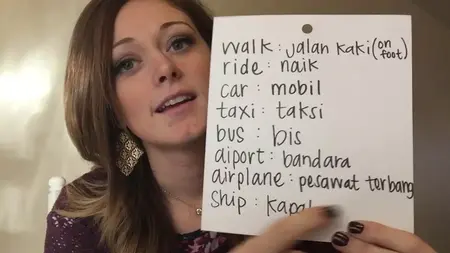 walk : jalan kaki (on foot)
ride : naik
car : mobil
taxi : taksi
bus : bis
aiport : bandara
airplane : pesawat terbang
ship :